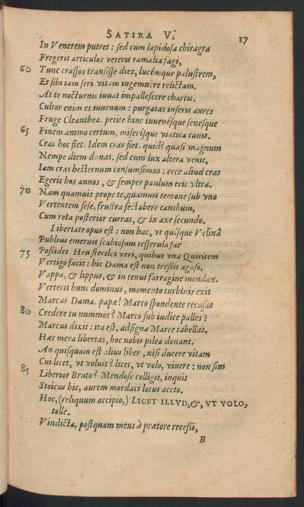 SATIRA V. 17
In Venerem putret: sed cum lapidosa chiragra
Fregerit articulos veteris ramalia fagi,
60 Tunc crassos transisse dies, lucemque palustrem,
Et sibi iam seri vitam ingemuere relictam.
At te nocturnis iuuat impallescere chartis.
Cultor enim es iuuenum: purgatas inseris aures
Fruge Cleanthea. petite hinc iuuenésque senésque
65 Finem animo certum, miserísque viatica canis.
Cras hoc fiet. Idem cras fiet. quid? quasi magnum
Nempe diem donas. sed cum lux altera venit,
Iam cras hesternum consumsimus: ecce aliud cras
Egerit hos annos, & semper paulum erit vltra.
70 Nam quamuis prope te, quamuis temone sub vno
Vertentem sese, frustra sectabere canthum,
Cum rota posterior curras, & in axe secundo.
Libertate opus est: non hac, vt quisque Velina
Publius emeruit scabiosum tesserula far
75 Possidet. Heu steriles veri, quibus vna Quiritem
Vertigo facit: hic Dama est non tressis agaso,
Vappa, & lippus, & in tenui farragine mendax.
Verterit hunc dominus, momento turbinis exit
Marcus Dama. papæ! Marco spondente recusas
80 Credere tu nummos? Marco sub iudice palles?
Marcus dixit: ita est. adsigna Marce tabellas.
Hæc mera libertas, hoc nobis pilea donant.
An quisquam est alius liber, nisi ducere vitam
Cui licet, vt voluit? licet, vt volo, viuere: non sim
85 Liberior Bruto? Mendose colligis, inquit
Stoicus hic, aurem mordaci lotus aceto.
Hoc, (reliquum accipio,) LICET ILLVD, &, VT VOLO,
tolle.
Vindicta, postquam meus à prætore recessi,
B